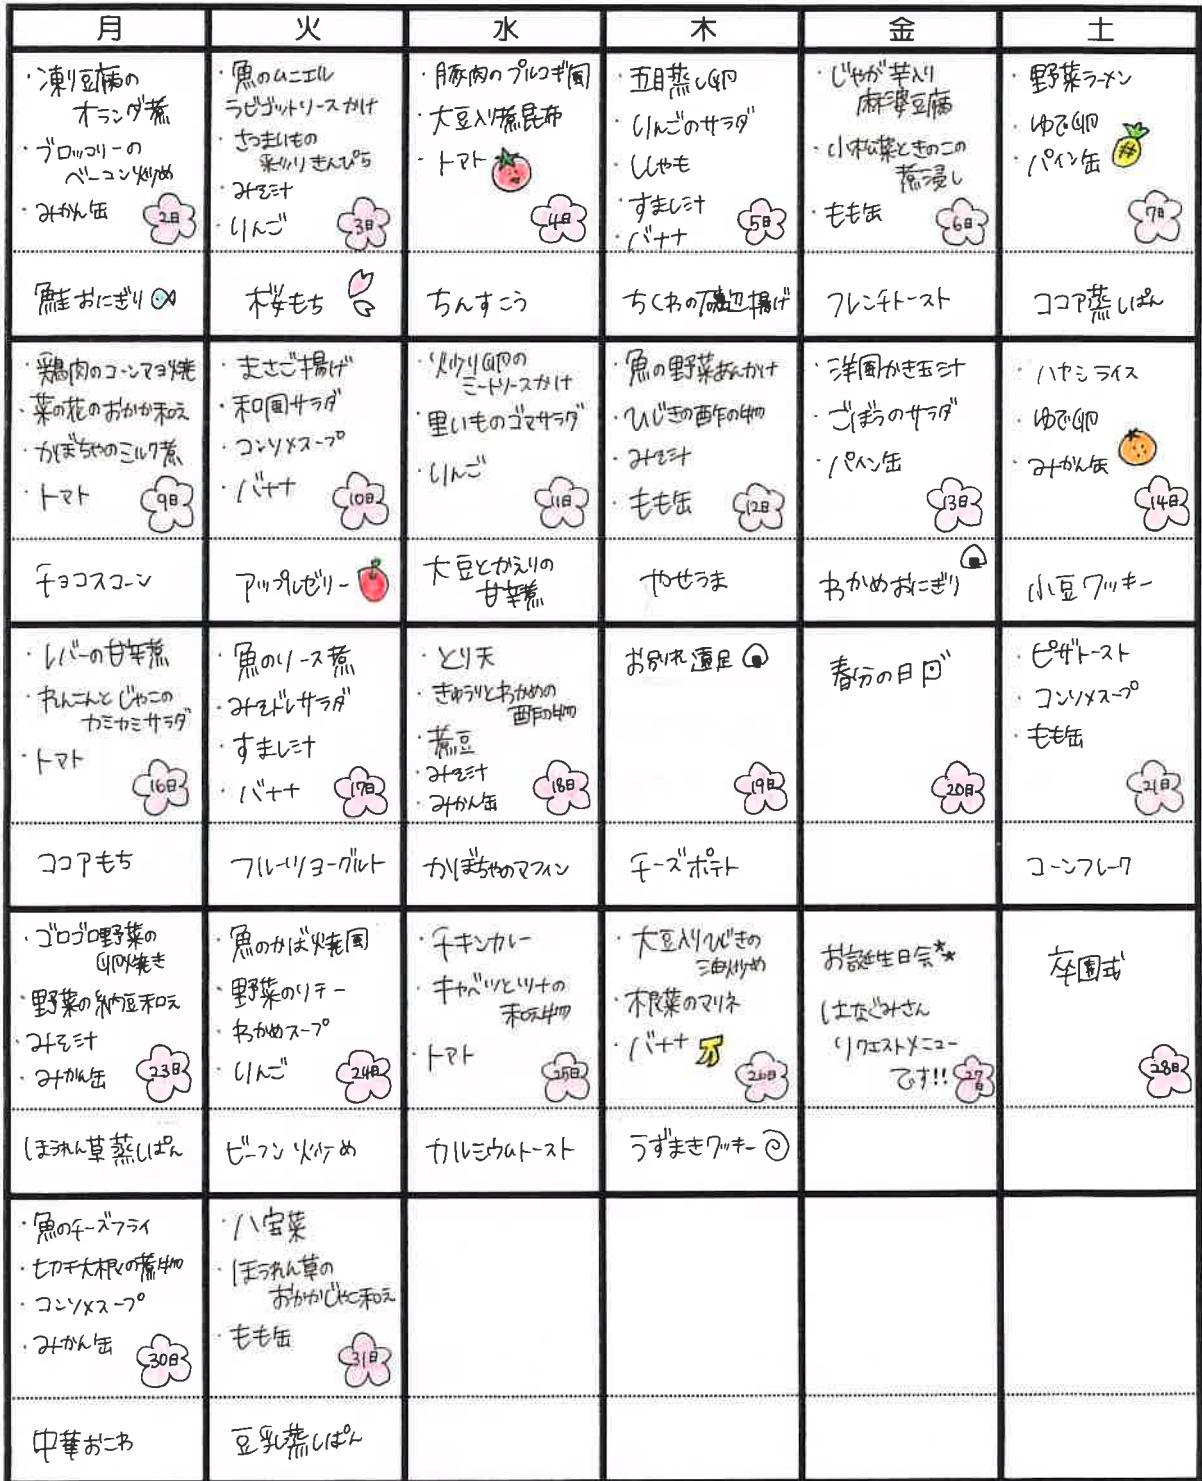 月
火
水
木
金
土
・凍り豆腐の
オランダ煮
・ブロッコリーの
ベーコン炒め
・みかん缶
2日
・魚のムニエル
ラビゴットソースかけ
・さつまいもの
彩りきんぴら
・みそ汁
・りんご
3日
・豚肉のプルコギ風
・大豆入り煮昆布
・トマト
4日
・五目蒸し卵
・りんごのサラダ
・ししゃも
・すまし汁
・バナナ
5日
・じゃが芋入り
麻婆豆腐
・小松菜ときのこの
煮浸し
・もも缶
6日
・野菜ラーメン
・ゆで卵
・パイン缶
7日
鮭おにぎり
桜もち
ちんすこう
ちくわの磯辺揚げ
フレンチトースト
ココア蒸しぱん
・鶏肉のコーンマヨ焼
・菜の花のおかか和え
・かぼちゃのミルク煮
・トマト
9日
・まさご揚げ
・和風サラダ
・コンソメスープ
・バナナ
10日
・炒り卵の
ミートソースかけ
・里いものゴマサラダ
・りんご
11日
・魚の野菜あんかけ
・ひじきの酢の物
・みそ汁
・もも缶
12日
・洋風かき玉汁
・ごぼうのサラダ
・パイン缶
13日
・ハヤシライス
・ゆで卵
・みかん缶
14日
チョコスコーン
アップルゼリー
大豆とかえりの
甘辛煮
やせうま
わかめおにぎり
小豆クッキー
・レバーの甘辛煮
・れんこんとじゃこの
カミカミサラダ
・トマト
16日
・魚のソース煮
・みそドレサラダ
・すまし汁
・バナナ
17日
・とり天
・きゅうりとわかめの
酢の物
・煮豆
・みそ汁
・みかん缶
18日
お別れ遠足
19日
春分の日
20日
・ピザトースト
・コンソメスープ
・もも缶
21日
ココアもち
フルーツヨーグルト
かぼちゃのマフィン
チーズポテト
コーンフレーク
・ゴロゴロ野菜の
卵焼き
・野菜の納豆和え
・みそ汁
・みかん缶
23日
・魚のかば焼風
・野菜のソテー
・わかめスープ
・りんご
24日
・チキンカレー
・キャベツとツナの
和え物
・トマト
25日
・大豆入りひじきの
油炒め
・根菜のマリネ
・バナナ
26日
お誕生日会**
はなぐみさん
リクエストメニュー
です!!
27日
卒園式
28日
ほうれん草蒸しぱん
ビーフン炒め
カルシウムトースト
うずまきクッキー
・魚のチーズフライ
・切干大根の煮物
・コンソメスープ
・みかん缶
30日
・八宝菜
・ほうれん草の
おかかじゃこ和え
・もも缶
31日
中華おこわ
豆乳蒸しぱん